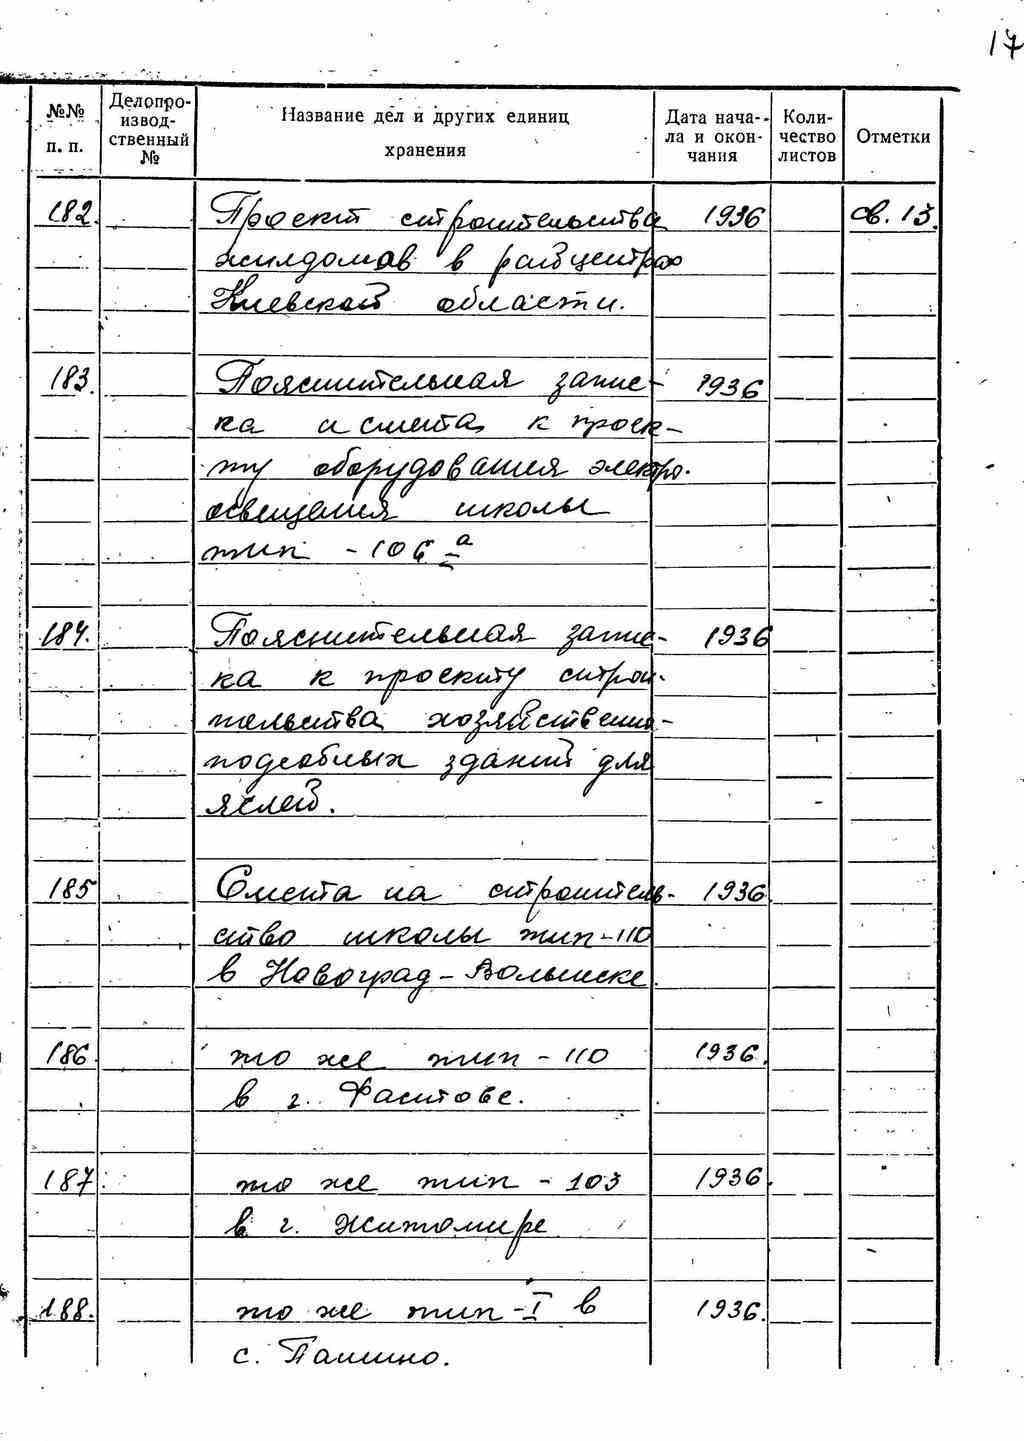 17
№№ п. п.
Делопро-
извод-
ственный
№
Название дел и других единиц
хранения
Дата нача-
ла и окон-
чания
Коли-
чество
листов
Отметки
182. Проект строительства 1936 св. 13.
жилдомов в райцентрах
Киевской области.
183. Пояснительная запис- 1936
ка и смета к проек-
ту оборудования электро-
освещения школы
тип - 106 а
184. Пояснительная запис- 1936
ка к проекту строи-
тельства хозяйственно-
подсобных зданий для
яслей.
185 Смета на строитель- 1936
ство школы тип-110
в Новоград-Волынске.
186. то же тип - 110 1936.
в г. Фастове.
187 то же тип - 103 1936.
в г. Житомире
188. то же тип - I в 1936.
с.